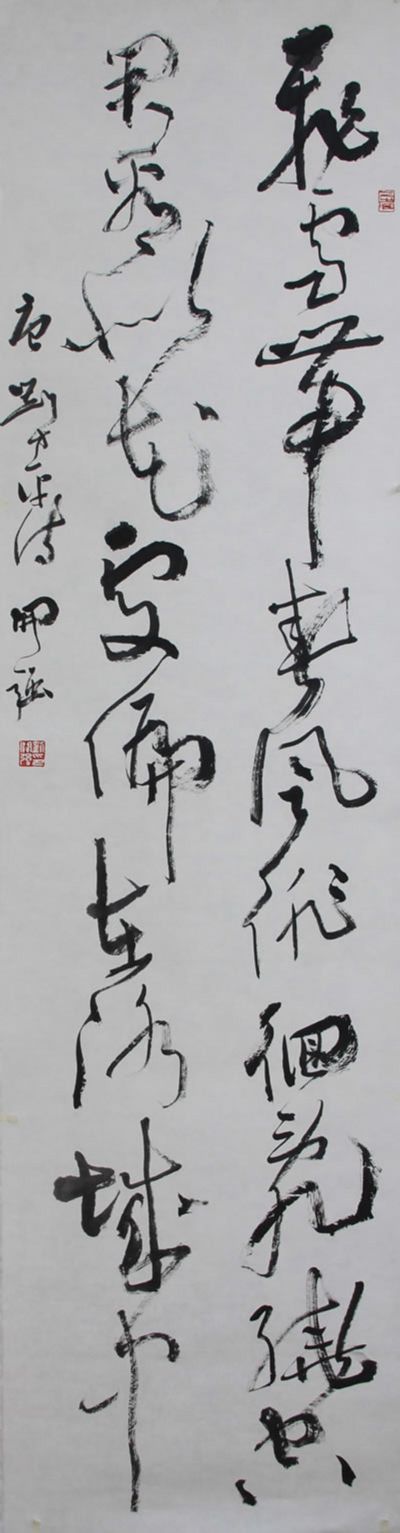 飛雪帶春風徘徊亂繞空
君看似花處偏在洛城中
唐劉方平詩